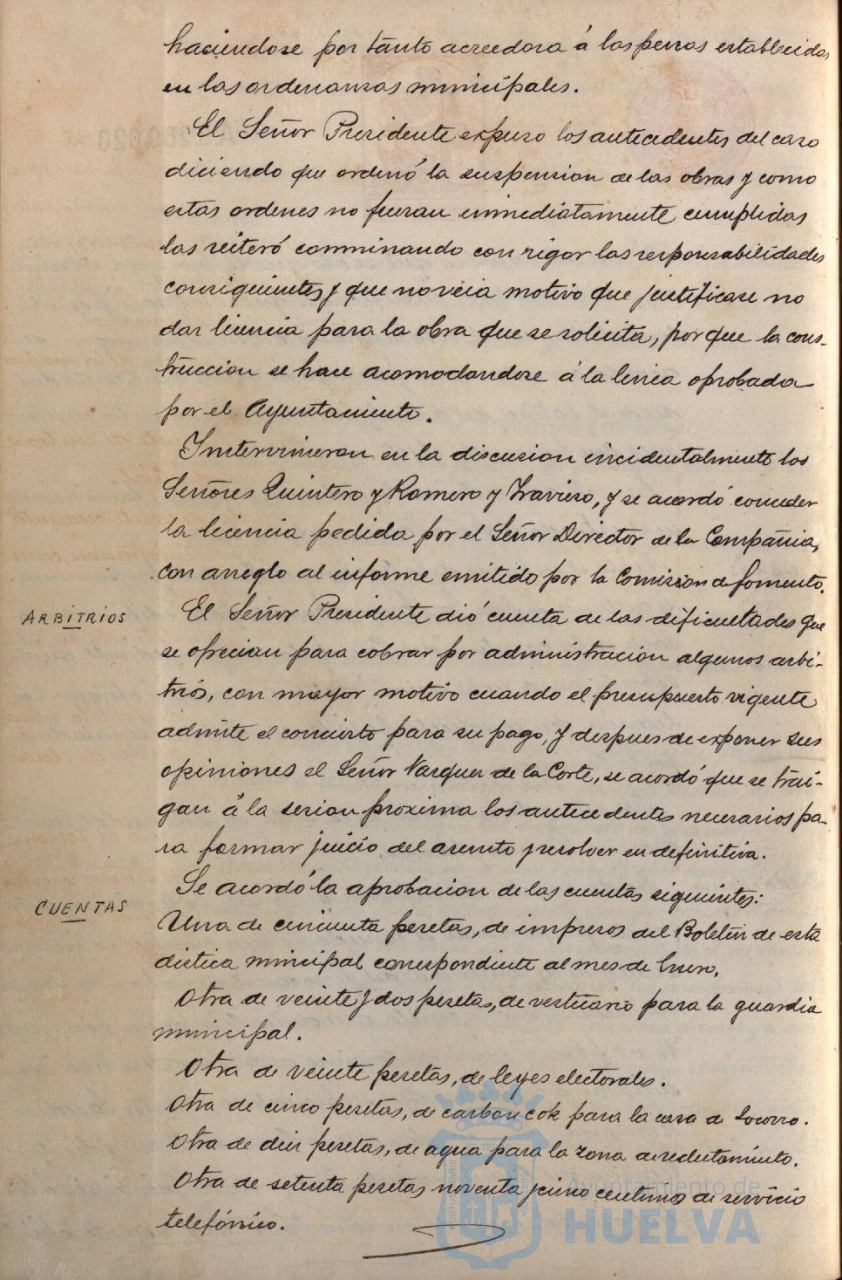 haciendose por tanto acreedora á las penas establecidas
en las ordenanzas municipales.
El Señor Presidente expuso los antecedentes del caso
diciendo que ordenó la suspension de las obras y como
estas ordenes no fueran inmediatamente cumplidas
las reiteró conminando con rigor las responsabilidades
consiguientes, y que no veia motivo que justificase no
dar licencia para la obra que se solicita, por que la cons-
truccion se hace acomodandose á la linea aprobada
por el Ayuntamiento.
Intervinieron en la discusion incidentalmente los
Señores Quintero y Romero y Travieso, y se acordó conceder
la licencia pedida por el Señor Director de la Compañia,
con arreglo al informe emitido por la Comision de fomento.
ARBITRIOS
El Señor Presidente dió cuenta de las dificultades que
se ofrecian para cobrar por administracion algunos arbi-
trios, con mayor motivo cuando el presupuesto vigente
admite el concierto para su pago, y despues de exponer sus
opiniones el Señor Vazquez de la Corte, se acordó que se trai-
gan á la sesion proxima los antecedentes necesarios pa-
ra formar juicio del asunto y resolver en definitiva.
CUENTAS
Se acordó la aprobacion de las cuentas siguientes:
Una de cincuenta pesetas, de impresos del Boletin de esta
distica municipal correspondiente al mes de Enero.
Otra de veinte y dos pesetas, de vestuario para la guardia
municipal.
Otra de veinte pesetas, de leyes electorales.
Otra de cinco pesetas, de carbon cok para la casa de Socorro.
Otra de diez pesetas, de agua para la zona de reclutamiento.
Otra de setenta pesetas noventa y cinco centimos de servicio
telefónico.
Ayuntamiento de
HUELVA